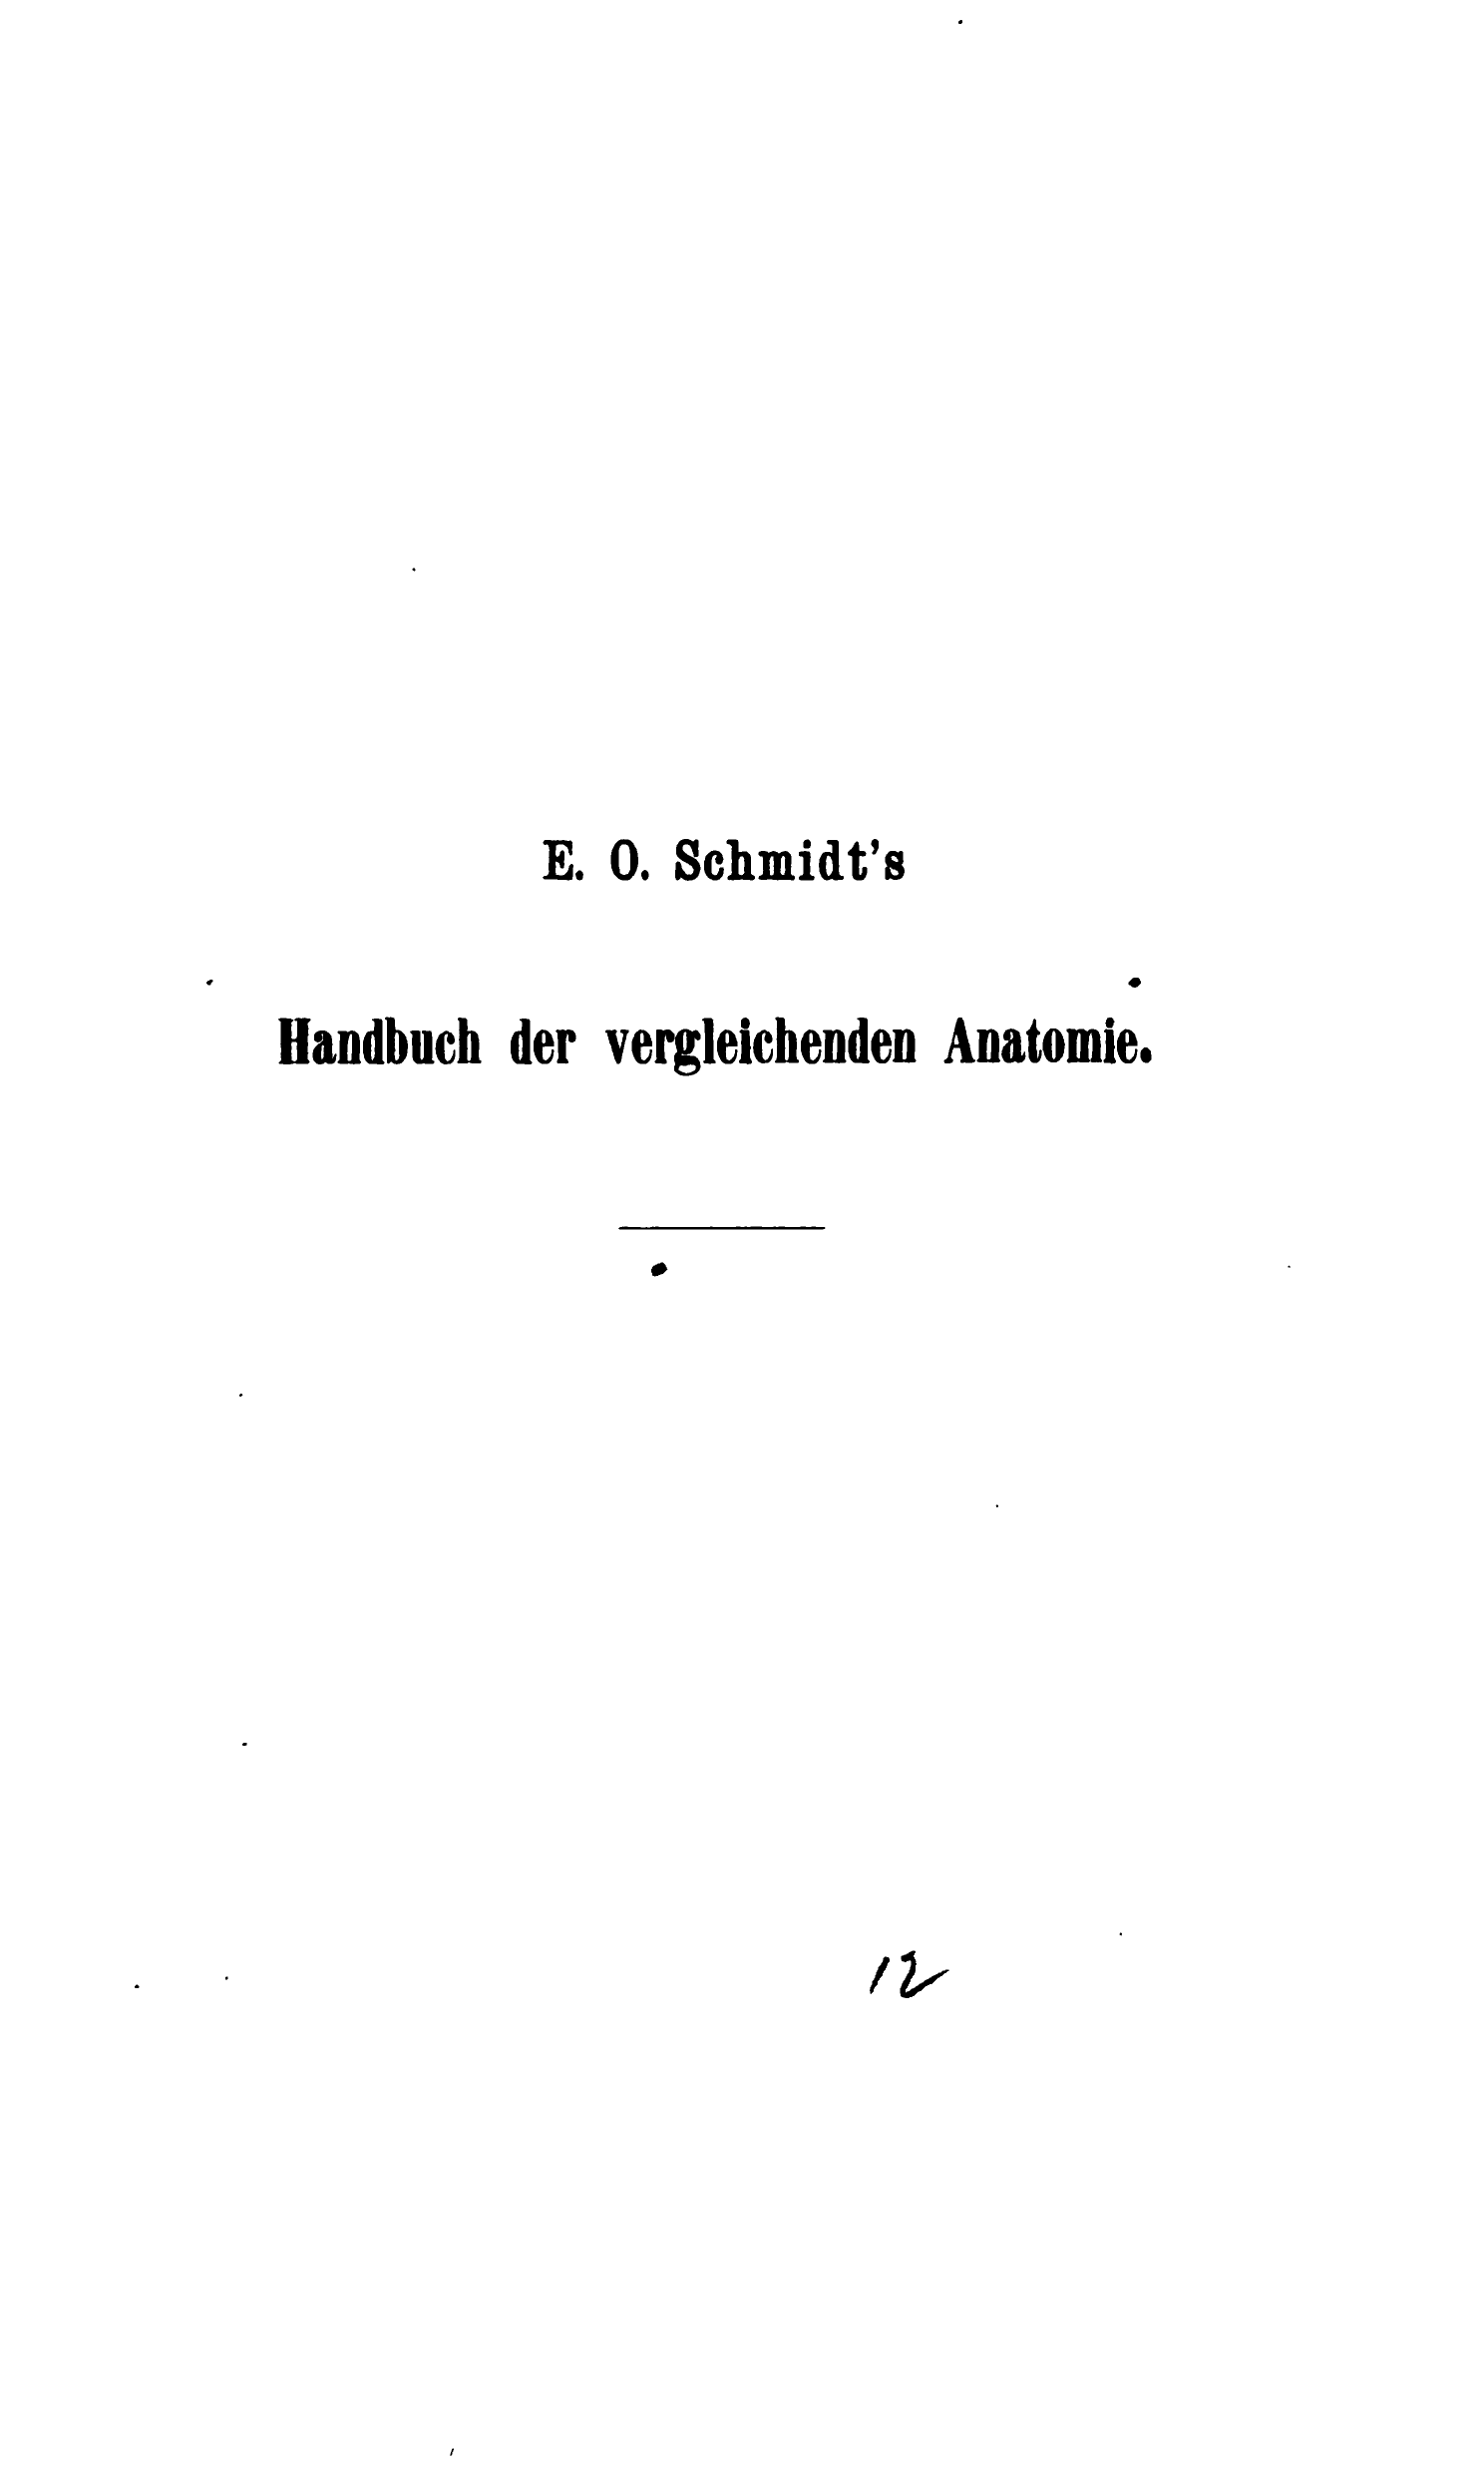 E. O. Schmidt's
Handbuch der vergleichenden Anatomie.
12